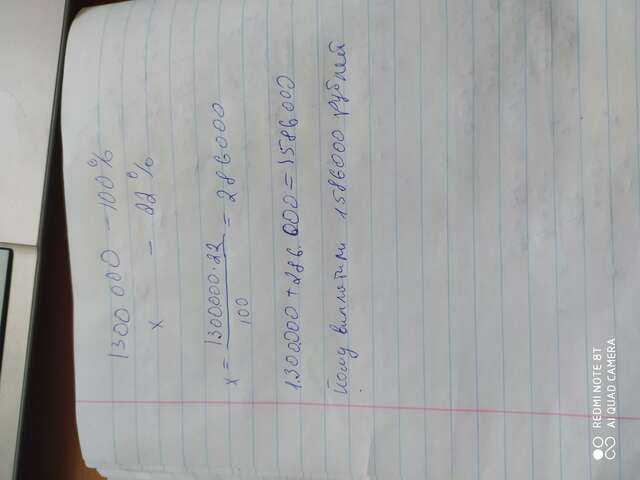 1300 000 - 100%
x - 22%
x = 1300000·22 / 100 = 286000
1.300.000 + 286.000 = 1586000
Йому виплатили 1586000 рублей
REDMI NOTE 8T
AI QUAD CAMERA